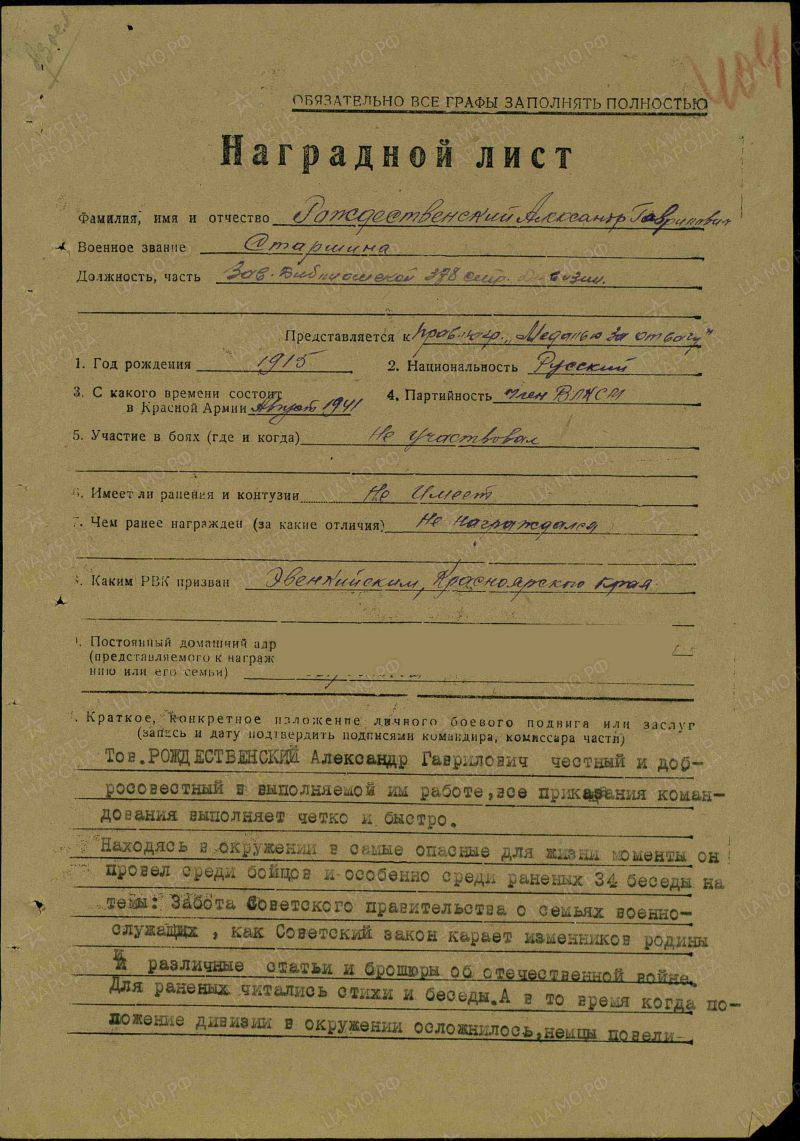 404
ОБЯЗАТЕЛЬНО ВСЕ ГРАФЫ ЗАПОЛНЯТЬ ПОЛНОСТЬЮ
Наградной лист
Фамилия, имя и отчество Рождественский Александр Гаврилович
Военное звание Старшина
Должность, часть Зав. Библиотекой 378 стр. Дивизии.
Представляется к правит. „Медалью за отвагу"
1. Год рождения 1915 2. Национальность Русский
3. С какого времени состоит
в Красной Армии Август 1941 4. Партийность член ВЛКСМ
5. Участие в боях (где и когда) Не участвовал
6. Имеет ли ранения и контузии Не имеет
7. Чем ранее награжден (за какие отличия) Не награждался
8. Каким РВК призван Эвенкийским, Красноярского края
9. Постоянный домашний адр
(представляемого к награж
нию или его семьи)
Краткое, конкретное изложение личного боевого подвига или заслуг
(запись и дату подтвердить подписями командира, комиссара части)
Тов.РОЖДЕСТВЕНСКИЙ Александр Гаврилович честный и доб-
росовестный в выполняемой им работе,все приказания коман-
дования выполняет четко и быстро.
Находясь в окружении в самые опасные для жизни моменты он
провел среди бойцов и особенно среди раненых 34 беседы на
темы: Забота Советского правительства о семьях военно-
служащих , как Советский закон карает изменников родины
И различные статьи и брошюры об отечественной войне.
Для раненых читались стихи и беседы.А в то время когда по-
ложение дивизии в окружении осложнилось,немцы повели-